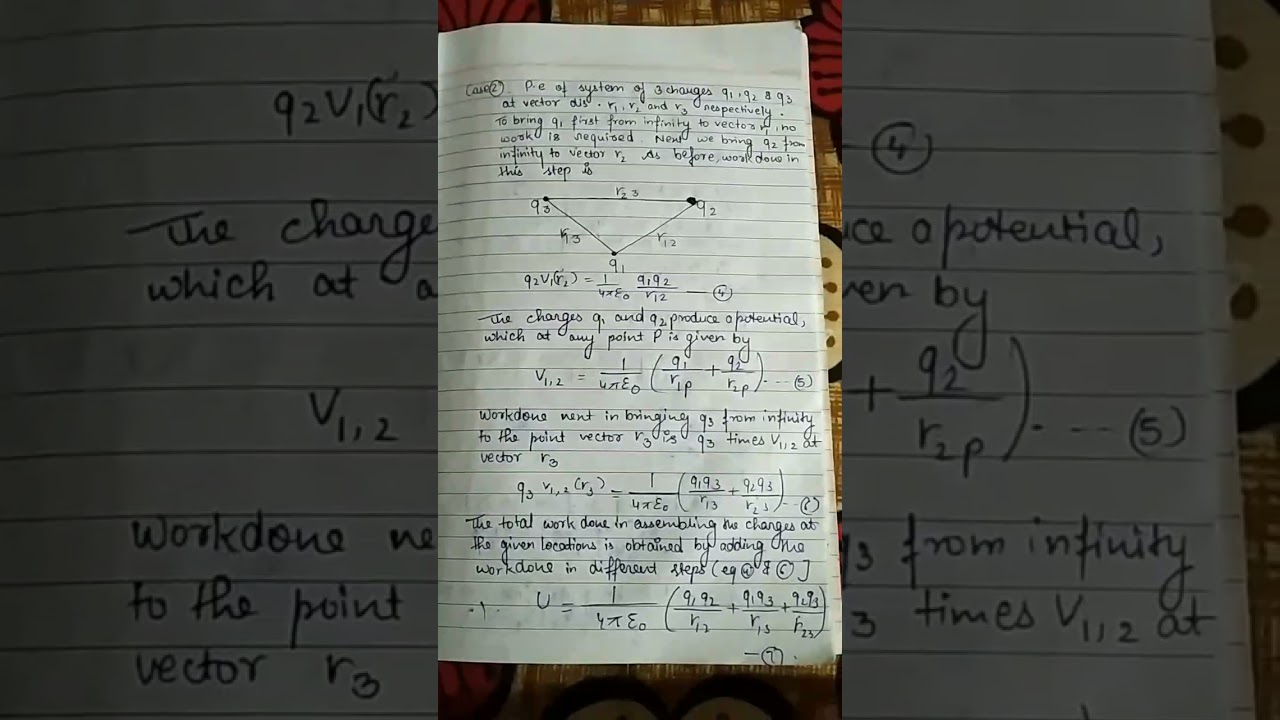 Case ② P.e of system of 3 charges q1, q2 & q3
at vector dis. r1, r2 and r3 respectively.
To bring q1 first from infinity to vector r1, no
work is required. Next we bring q2 from
infinity to vector r2 As before, work done in
this step is
r23
q3 q2
r13 r12
q1
q2V1(r2) = 1/4πε0 q1q2/r12 — ④
The charges q1 and q2 produce a potential,
which at any point P is given by
V1,2 = 1/4πε0 (q1/r1p + q2/r2p) . --- (5)
Workdone next in bringing q3 from infinity
to the point vector r3 is q3 times V1,2 at
vector r3
q3 V1,2 (r3) = 1/4πε0 (q1q3/r13 + q2q3/r23) --- (6)
The total work done in assembling the charges at
the given locations is obtained by adding the
workdone in different steps [eq ④ & ⑥]
∴ U = 1/4πε0 (q1q2/r12 + q1q3/r13 + q2q3/r23)
— ⑦.